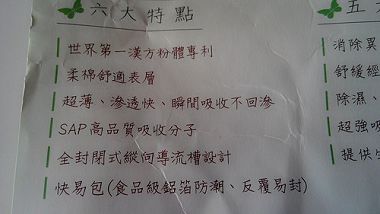 六大特點
世界第一漢方粉體專利
柔綿舒適表層
超薄、滲透快、瞬間吸收不回滲
SAP高品質吸收分子
全封閉式縱向導流槽設計
快易包(食品級鋁箔防潮、反覆易封)
五
消除異
舒緩經
除濕、
超強吸
提供